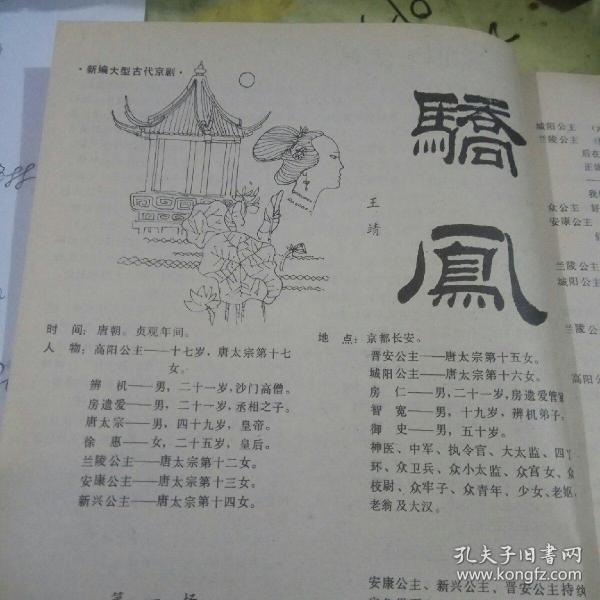 ·新编大型古代京剧·
驕鳳
王靖
时 间：唐朝。贞观年间。
人 物：高阳公主——十七岁，唐太宗第十七
女。
辨 机——男，二十一岁，沙门高僧。
房遗爱——男，二十一岁，丞相之子。
唐太宗——男，四十九岁，皇帝。
徐 惠——女，二十五岁，皇后。
兰陵公主——唐太宗第十二女。
安康公主——唐太宗第十三女。
新兴公主——唐太宗第十四女。
地 点：京都长安。
晋安公主——唐太宗第十五女。
城阳公主——唐太宗第十六女。
房 仁——男，二十一岁，房遗爱管家
智 宽——男，十九岁，辨机弟子。
御 史——男，五十岁。
神医、中军、执令官、大太监、四丫
环、众卫兵、众小太监、众宫女、众
校尉、众牢子、众青年、少女、老妪、
老翁及大汉。
第一场
安康公主、新兴公主、晋安公主持
城阳公主
兰陵公主
后在
众公主
安康公主
兰陵公主
城阳公主
兰陵公
高阳公
孔夫子旧书网
www.kongfz.com